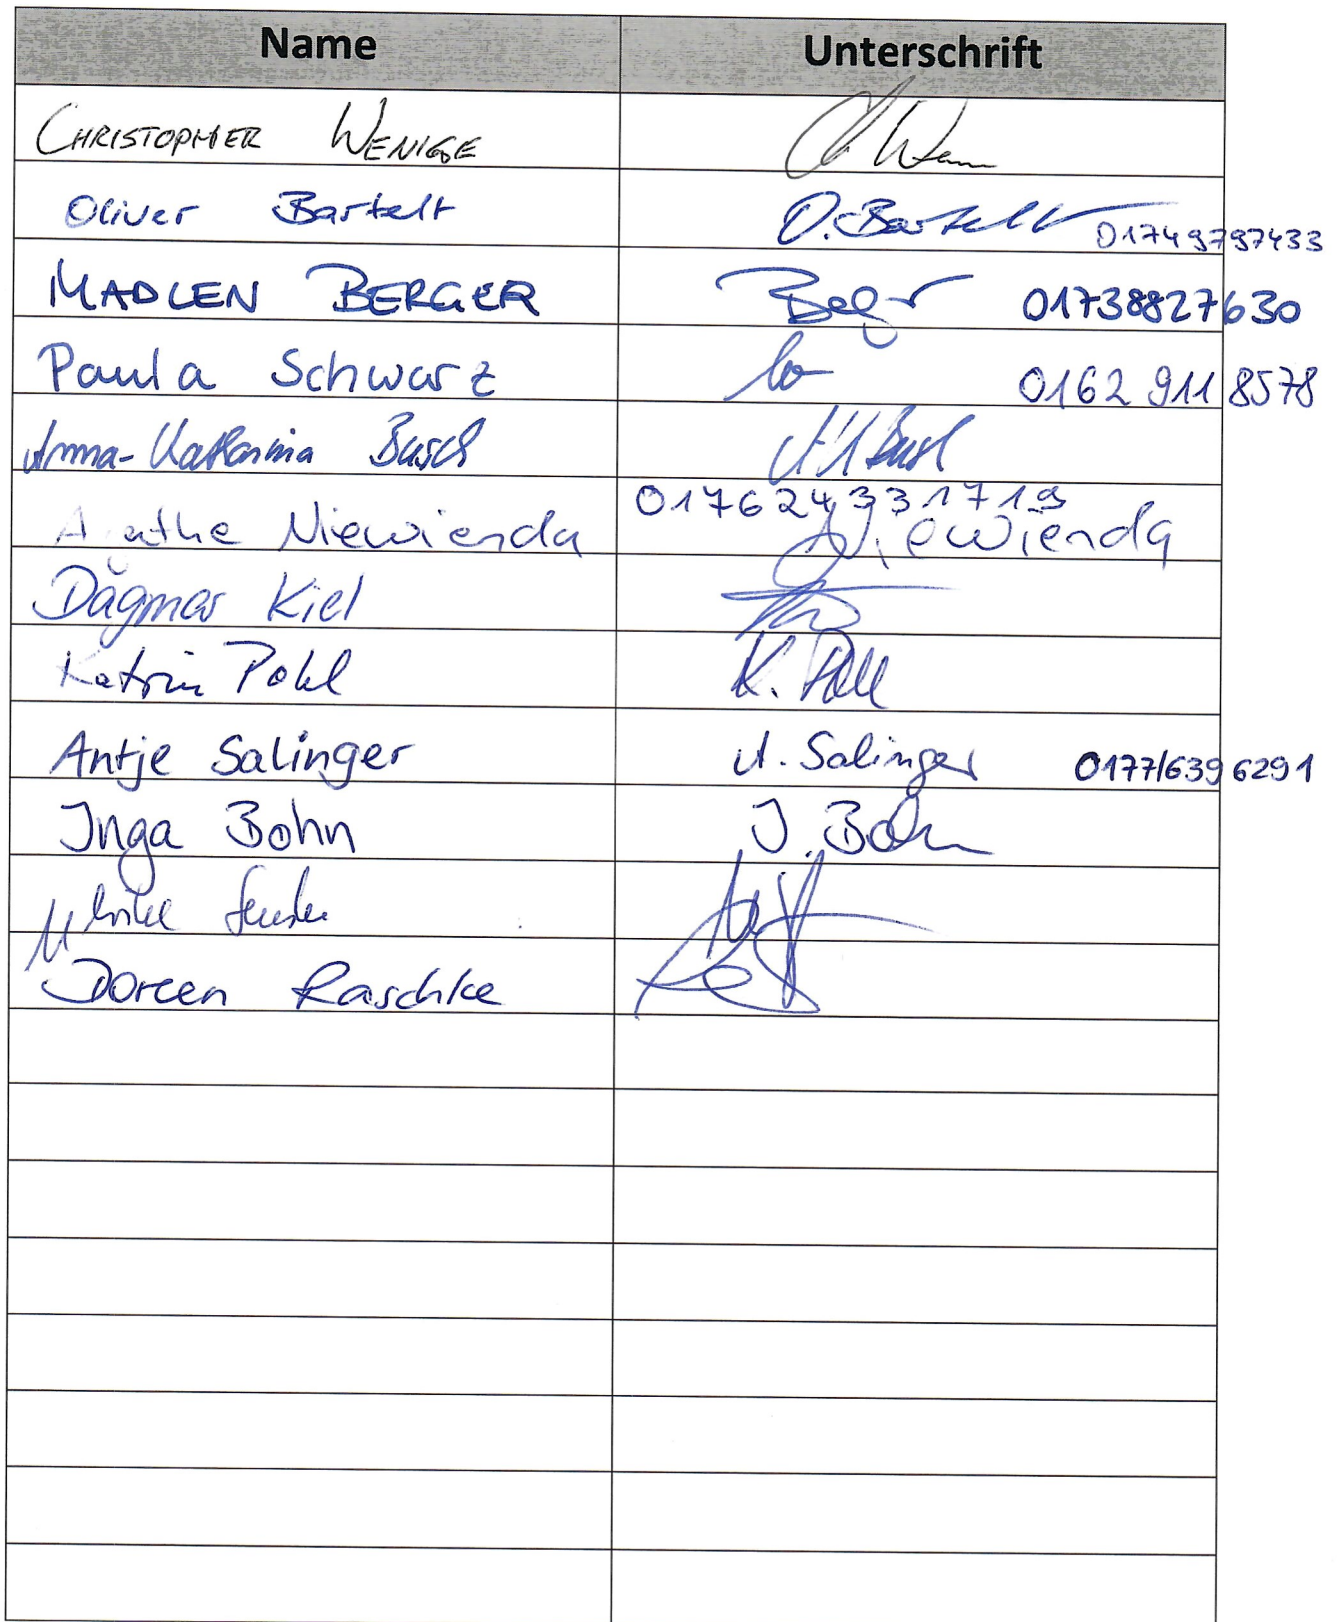 Name Unterschrift
CHRISTOPHER WENIGE
Oliver Bartelt O. Bartelt 01749797433
MADLEN BERGER 01738827630
Paula Schwarz 0162 911 8578
Anna-Katharina Busch
017624331719
Niewienda Niewienda
Dagmar Kiel
Katrin Pohl K. Pohl
Antje Salinger A. Salinger 0177/6396291
Inga Bohn I. Bohn
Ulrike
Doreen Raschke